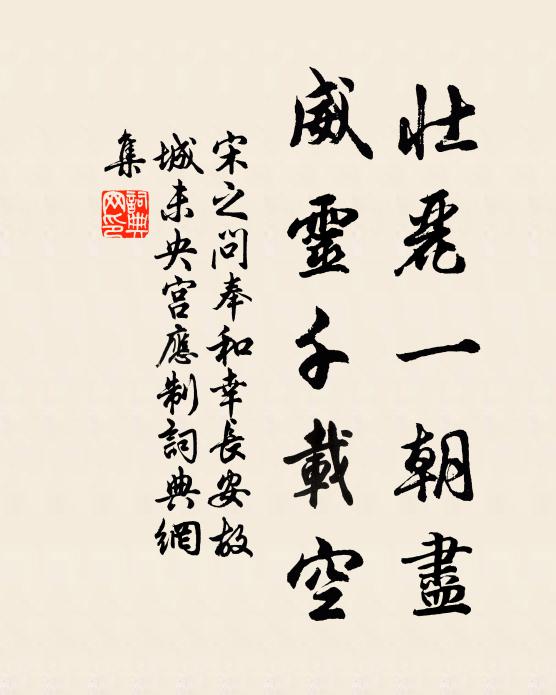 壯麗一朝盡
威靈千載空
宋之問奉和幸長安故
城未央宮應制詞典網
集
詞典
网印